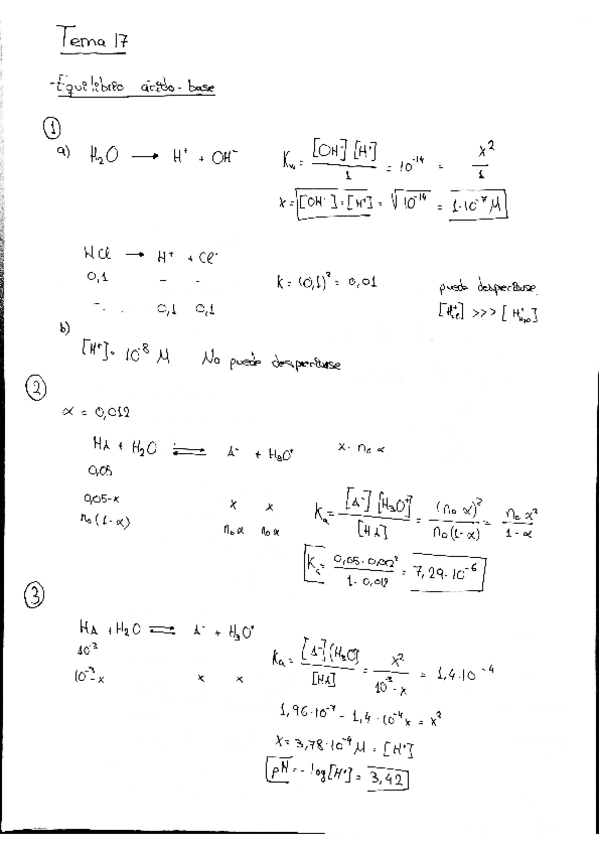 Tema 17
- Equilibrio ácido-base
①
a) H₂O → H⁺ + OH⁻ Kw = [OH⁻][H⁺] / 1 = 10⁻¹⁴ = x² / 1
x = [OH⁻] = [H⁺] = √10⁻¹⁴ = 1·10⁻⁷ M
HCl → H⁺ + Cl⁻
0,1 - - K = (0,1)² = 0,01 puede despreciarse
-. . 0,1 0,1 >>> [H⁺H₂O]
b)
[H⁺] = 10⁻⁸ M No puede despreciarse
②
α = 0,012
HA + H₂O ⇌ A⁻ + H₃O⁺ x = n₀ α
0,05
0,05-x x x
n₀(1-α) n₀α n₀α Ka = [A⁻][H₃O⁺] / [HA] = (n₀ α)² / n₀(1-α) = n₀ α² / 1-α
= 0,05·0,012² / 1-0,012 = 7,29·10⁻⁶
③
HA + H₂O ⇌ A⁻ + H₃O⁺
10⁻³ Ka = [A⁻][H₃O⁺] / [HA] = x² / 10⁻³-x = 1,4·10⁻⁴
10⁻³-x x x
1,96·10⁻⁷ - 1,4·10⁻⁴x = x²
x = 3,78·10⁻⁴ M = [H⁺]
pH = -log[H⁺] = 3,42